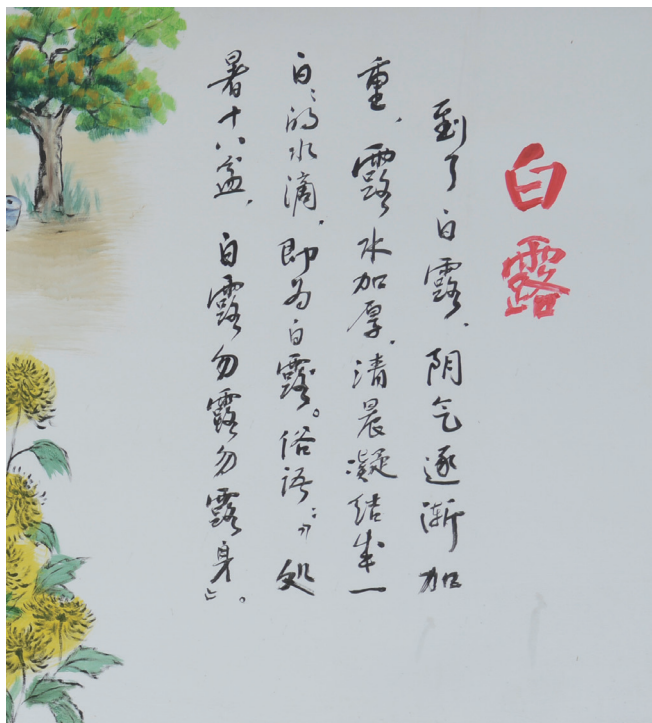 白露
到了白露、阴气逐渐加
重、露水加厚,清晨凝结成一
白々的水滴,即为白露。俗语:「处
暑十八盆,白露勿露勿露身」。